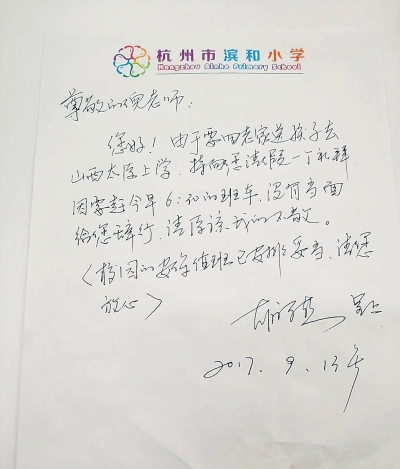 杭州市滨和小学
Hangzhou Binhe Primary School
尊敬的倪老师:
您好!由于要回老家送孩子去
山西太原上学,特向您请假一个礼拜,
因要赶今早6:30的班车,没有当面
给您辞行,请原谅我的不敬。
(校园的安保值班已安排妥当,请您
放心)
呈上
2017.9.13午